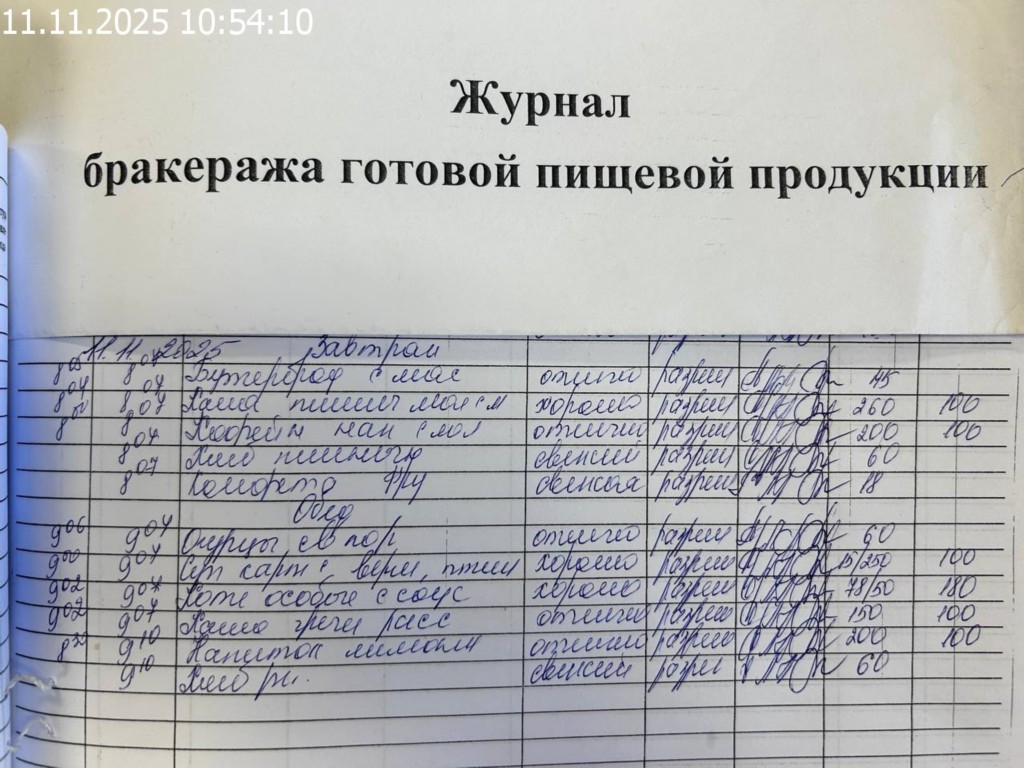 11.11.2025 10:54:10
Журнал
бракеража готовой пищевой продукции
11.11.2025 Завтрак
8 05 8 07 Бутерброд с мас отлично разреш 45
8 04 8 07 Каша пшен молоч хорошо разреш 260 100
8 00 8 07 Кофейн нап с мол отлично разреш 200 100
8 07 Хлеб пшеничн свежий разреш 60
8 07 Конфета фру свежая разреш 18
Обед
9 06 9 07 Огурцы св пор отлично разреш 60
9 00 9 07 Суп карт с верм, птицы хорошо разреш 15/250 100
9 02 9 07 Котл особые с соус хорошо разреш 78/50 180
9 02 9 07 Каша греч расс отлично разреш 150 100
9 10 Напиток лимонн отлично разреш 200 100
9 10 Хлеб рж. свежий разреш 60